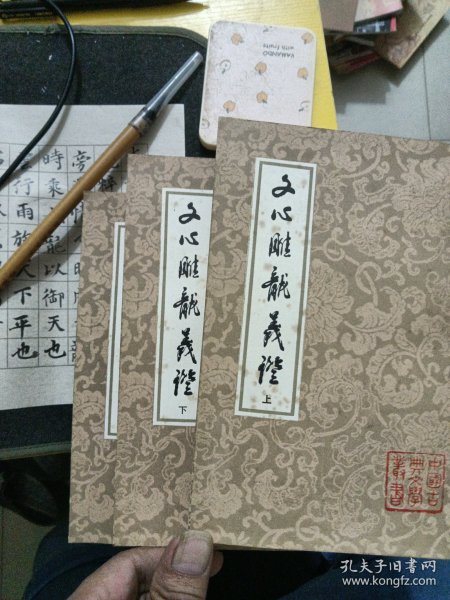 with fruits
旁
時乘龍以御天也
行雨施天下平也
文心雕龍義證
下
文心雕龍義證
上
中國古
典文學
叢書
孔夫子旧书网
www.kongfz.com